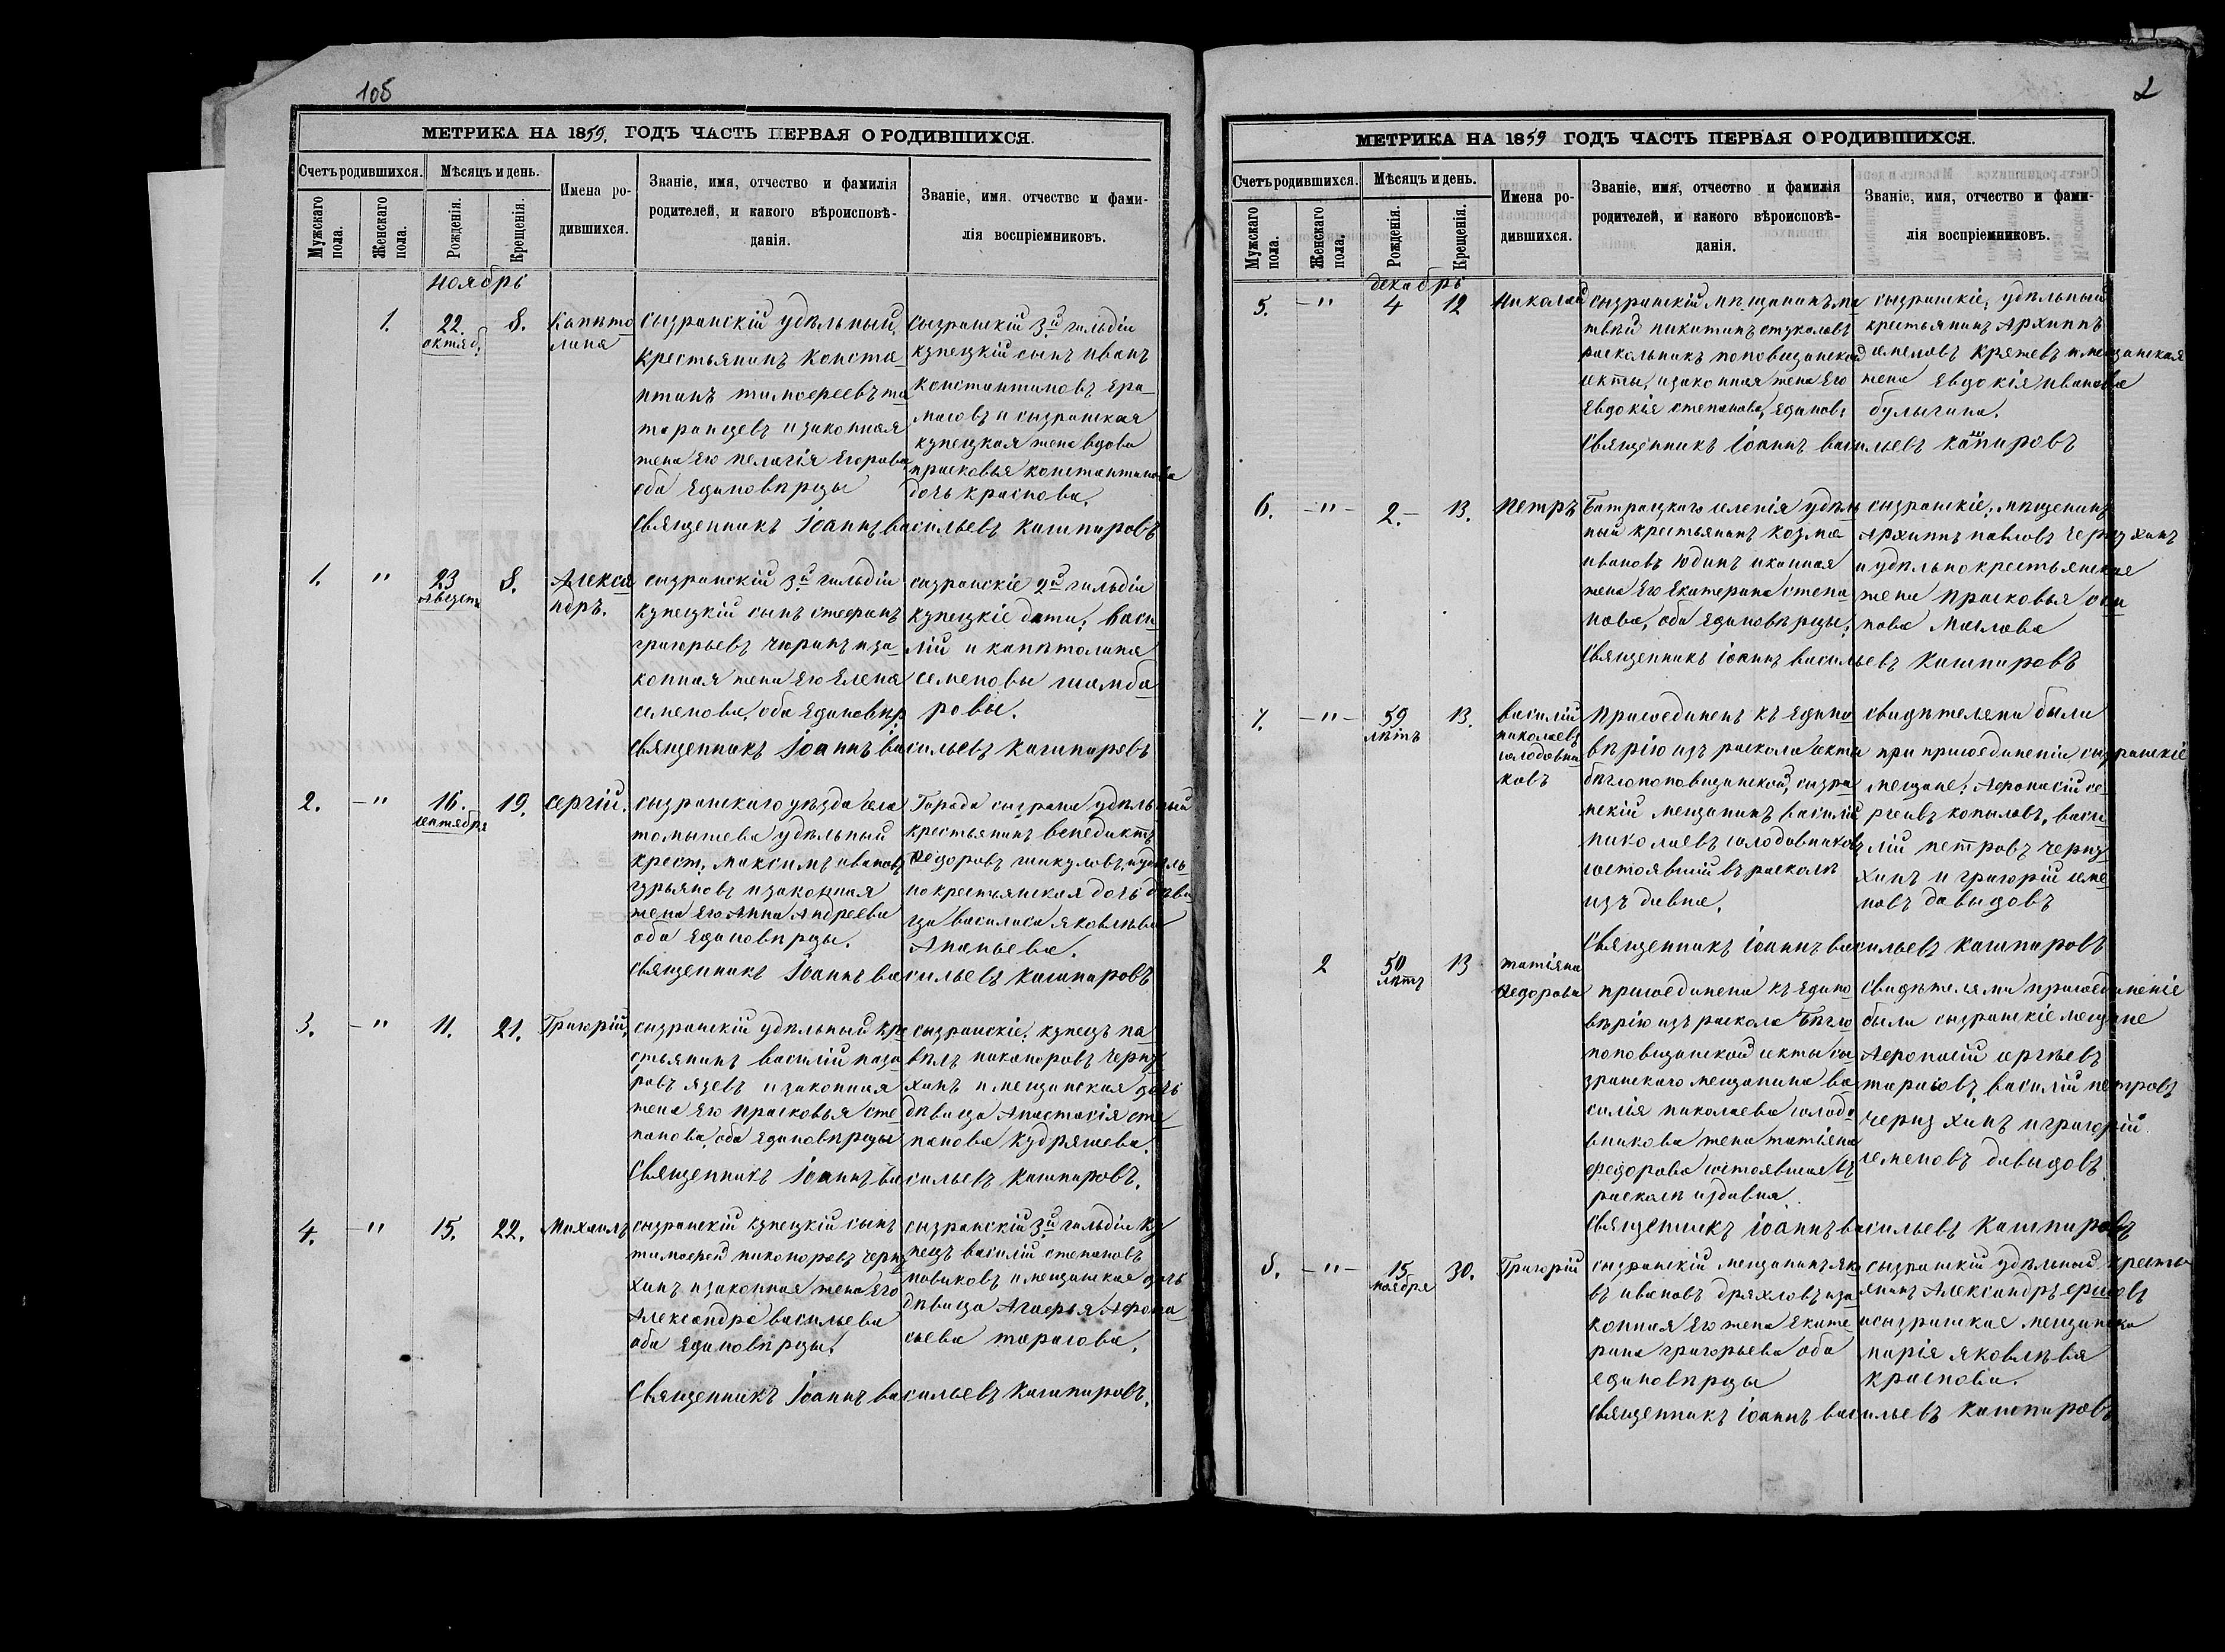 105
МЕТРИКА НА 1859. ГОДЪ ЧАСТЬ ПЕРВАЯ О РОДИВШИХСЯ.
Счетъ родившихся.
Мѣсяцъ и день.
Имена ро-
дившихся.
Званіе, имя, отчество и фамилія
родителей, и какого вѣроисповѣ-
данія.
Званіе, имя, отчество и фами-
лія воспріемниковъ.
Мужскаго
пола.
Женскаго
пола.
Рожденія.
Крещенія.
ноябрь
1.
22.
октяб.
8.
Капито
лина
сызранскій удѣльный
крестьянинъ конста
нтинъ тимофеевъ та
таринцевъ и законная
жена Его пелагія Егорова
оба Единовѣрцы
Сызранскій 3й гильдіи
купецкій сынъ иванъ
константиновъ
и сызранская
купецкая жена вдова
прасковья константинова
дочь краснова.
Священникъ Іоаннъ васильевъ кашпировъ
1.
"
23
8.
Алекса
ндръ.
сызранскій 3й гильдіи
купецкій сынъ стефанъ
григорьевъ чюринъ и за-
конная жена Его Елена
семенова, оба Единовѣр
сызранскіе 2й гильдіи
купецкіе дети: васи
лій и капитолина
семеновы
ровы.
Священникъ Іоаннъ васильевъ кашпировъ
2.
- "
16.
сентября
19.
сергій.
сызранскаго уѣзда села
томышева удѣльный
крест: максимъ ивановъ
гурьяновъ и законная
жена Его Анна Андреева
оба Единовѣрцы.
Города сызрана удѣльный
крестьянинъ венедиктъ
Ѳедоровъ шикуловъ и удель
но крестьянская дочь дѣви
ца василиса яковлѣва
Ананьева.
Священникъ Іоаннъ васильевъ кашпировъ
3.
- "
11.
21.
Григорій,
сызранскій удѣльный кре
стьянинъ василій наза
ровъ язевъ и законная
жена Его прасковья сте
панова, оба Единовѣрцы
сызранскіе: купецъ па
вѣлъ никаноровъ черну
хинъ и мещанская дочь
дѣвица Анастасія сте
панова кудряшева.
Священникъ Іоаннъ васильевъ кашпировъ.
4.
- "
15.
22.
Михаилъ
сызранскій купецкій сынъ
тимофей никоноровъ черну
хинъ и законная жена Его
Александра васильева
оба Единовѣрцы.
сызранскій 3й гильдіи ку
пецъ василій степановъ
новиковъ и мещанская дочь
дѣвица Агафья Афона
сьева тарасова.
Священникъ Іоаннъ васильевъ кашпировъ.
2
МЕТРИКА НА 1859 ГОДЪ ЧАСТЬ ПЕРВАЯ О РОДИВШИХСЯ.
Счетъ родившихся.
Мѣсяцъ и день.
Имена ро-
дившихся.
Званіе, имя, отчество и фамилія
родителей, и какого вѣроисповѣ-
данія.
Званіе, имя, отчество и фами-
лія воспріемниковъ.
Мужскаго
пола.
Женскаго
пола.
Рожденія.
Крещенія.
декабрь
5.
- "
4
12
николай
сызранскій мѣщанинъ ма
твѣй никитинъ стукаловъ
раскольникъ поповщинской
секты, и законная жена Его
Евдокія степанова, Единов
сызранскіе: удѣльный
крестьянинъ Архиппъ
семеновъ кряжевъ и мещанская
жена Евдокія иванова
булыгина.
Священникъ Іоаннъ васильевъ кашпировъ
6.
- " -
2. -
13.
петръ
Батрацкаго селенія удѣль
ный крестьянинъ козма
ивановъ юдинъ и конная
жена Его Екатерина степа
нова, оба Единовѣрцы;
сызранскіе: мѣщенинъ
Архиппъ павловъ чернухинъ
и удѣльно крестьянская
жена прасковья оси
пова маслова
Священникъ Іоаннъ васильевъ кашпировъ
7.
- " -
59
лѣтъ
13.
василій
николаевъ
солодовни
ковъ
присоединенъ къ Едино
вѣрію изъ раскола секты
бѣглопоповщинской, сызра
нскій мещанинъ василій
николаевъ солодовниковъ
состоявшій въ расколѣ
изъ давна.
свидѣтелями были
при присоединеніи сызранскіе
мещане: Афонасій се
ргеевъ копыловъ, васи
лій петровъ черну
хинъ и григорій семе
новъ давыдовъ
Священникъ Іоаннъ васильевъ кашпировъ
2
50
лѣтъ
13
татіяна
Ѳедорова
присоединена къ Едино
вѣрію изъ раскола бѣгло
поповщинской секты сы
зранскаго мещанина ва
силія николаева солодо
вникова жена татіяна
федорова состоявшая въ
расколѣ издавна.
свидѣтелями присоединеніе
были сызранскіе мещане
Афонасій сергѣевъ
тарасовъ, василій петровъ
чернухинъ и григорій
семеновъ давыдовъ
Священникъ Іоаннъ васильевъ кашпировъ
8.
- " -
15
ноября
30.
Григорій
сызранскій мещанинъ яко
въ ивановъ дряхловъ и за
конная Его жена Екате
рина григорьева оба
единовѣрцы
сызранскій удѣльный кресть
янинъ Александръ
и сызранская мещанска
марія яковлѣвя
краснова.
Священникъ Іоаннъ васильевъ кашпировъ